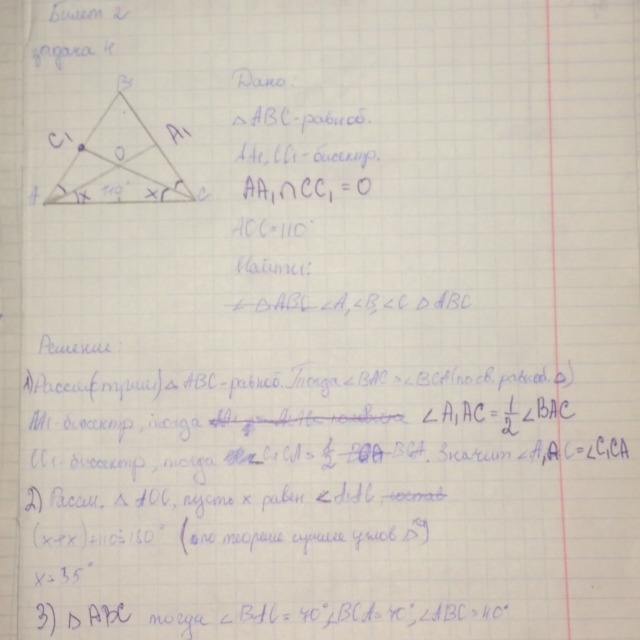 Билет 2
задача 4
B
C₁
A₁
O
A
x
110°
x
C
Дано:
△ABC-равноб.
AA₁, CC₁-биссктр.
AA₁∩CC₁=O
AOC=110°
Найти:
∠A,∠B,∠C △ABC
Решение:
1) △ABC-равноб. Тогда ∠BAC=∠BCA(по св. равноб.△)
AA₁-биссктр, тогда ∠A₁AC=1/2∠BAC
CC₁-биссктр, тогда ∠C₁CA=1/2 BCA. Значит ∠A₁AC=∠C₁CA
2) Рассм. △AOC, пусть x равен ∠A₁AC
(x+x)+110=180° (по теореме сумме углов △)
x=35°
3) △ABC тогда ∠BAC=70°,∠BCA=70°,∠ABC=40°